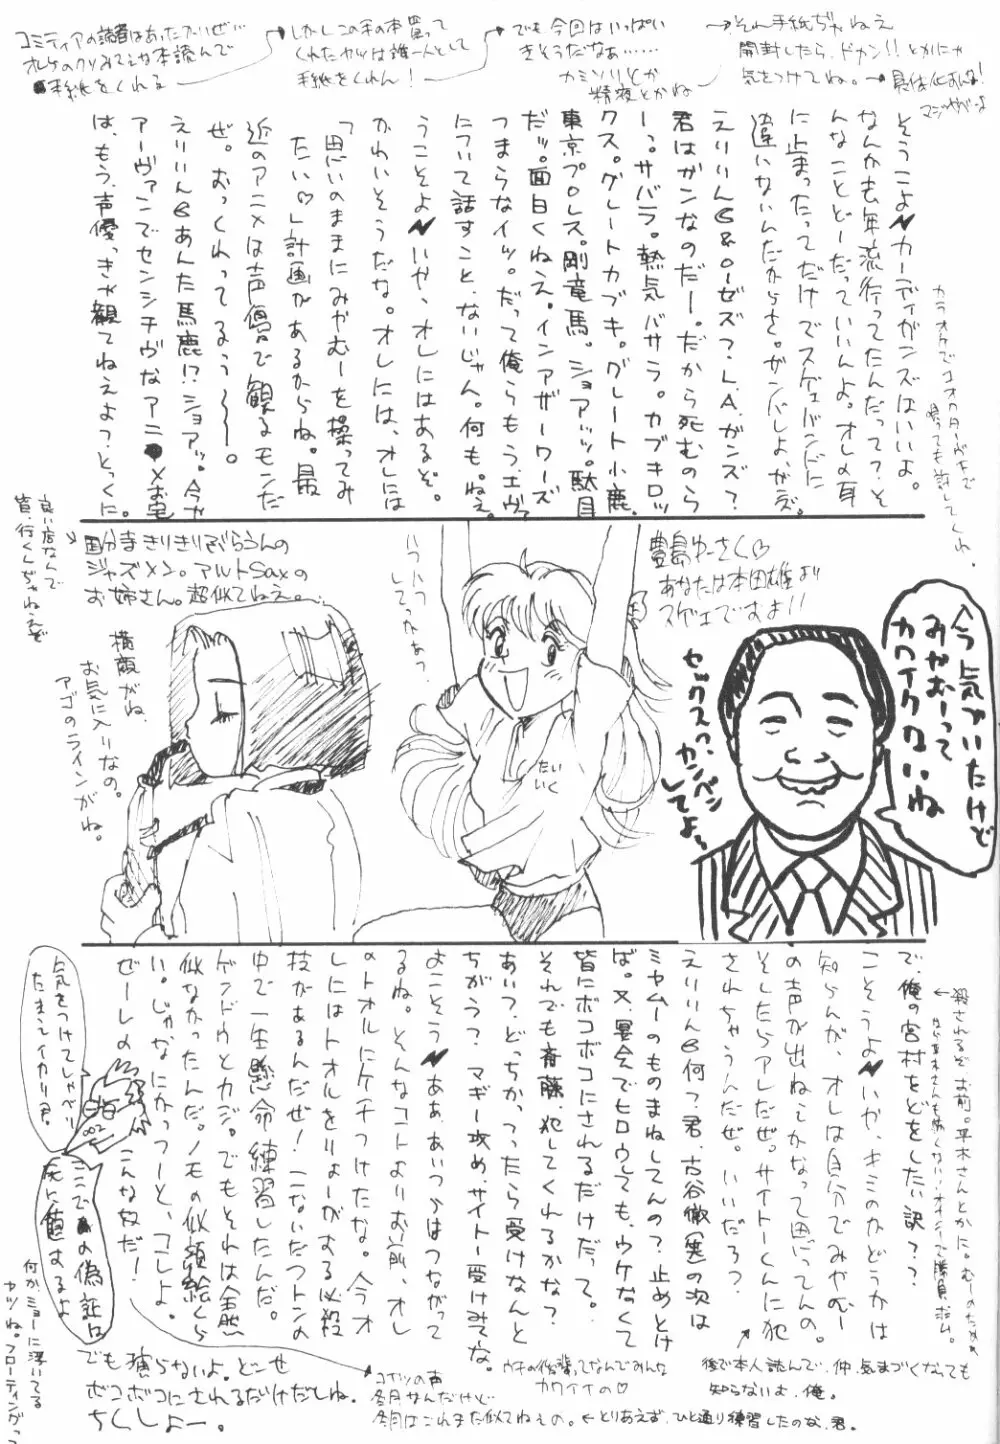 コミティアの読者はあったかいぜ…
オレのクソみてぇな本読んで
手紙をくれる
しかしこの手の本買って
くれたヤツは誰一人として
手紙をくれん！
でも今回はいっぱい
きそうだなぁ……
カミソリとか
精液とかね
それ手紙ぢゃねえ
開封したら、ドカン!!とかにゃ
気をつけてね。
そうこよカーディガンズはいいよ。
なんか去年流行ってたんだって？そ
んなことどーだっていいんよ。オレの耳
に止まったってだけでスゲェバンドに
違いないんだからさ。ガンバしよ、がズ。
えりりんG＆ローゼズ？L.A.ガンズ？
君はガンなのだー。だから死むのら
ーっ。サバラ。熱気バサラ。カブキロッ
クス。グレートカブキ。グレート小鹿。
東京プロレス。剛竜馬。ショアッッ。駄目
だッ。面白くねえ。インアザーワーズ
つまらなイッ。だって俺らもう、エヴァ
について話すこと、ないじゃん。何も。ねえ。
うこそよいや、オレにはあるぞ。
かわいそうだな。オレには、オレには
「思いのままにみやむーを操ってみ
たい♡」計画があるからね。最
近のアニメは声優で観るモンだ
ぜ。おっくれってるぅ〜〜。
えりりんGあんた馬鹿!?ショアッ。今や
アーヴァンでセンシチヴなアニメお宅
は、もう、声優っきゃ観てねえよっとっくに。
カラオケで
唄っても許してくれ。
良い店なんで
皆、行くんぢゃねえぞ
国分まきりきりぎぶらうんの
ジャズメン。アルトSaxの
お姉さん。超似てねえ。
横顔がね、
お気に入りなの。
アゴのラインがね。
ハフハフ
してっかぁっ
たいいく
豊島ゆーさく♡
あなたは本田雄より
スゲェですよ!!
セックスワ、カンベンしてよぅ
今気づいたけど
みやむーって
カワイクないね
で、俺の宮村をどをしたい訳？？
こそうよいや、キミのかどうかは
知らんが、オレは自分でみやむー
の声が出ねーしかなって困ってんの。
そしたらアレだぜ。サイトーくんに犯
されちゃうんだぜ。いいだろ？
えりりんG何？君、古谷徹(笑)の次は
ミヤムーのものまねしてんの？止めとけ
ば。又、宴会でヒロウしても、ウケなくて
皆にボコボコにされるだけだって。
それでも斎藤、犯してくれるかな？
あいつ、どっちかっつったら受けなんと
ちがう？マギー攻め、サイトー受けみてな。
よこそうああ、あいつらはつながって
るね。そんなコトよりお前、オレ
のトオルにケチつけたな。今オ
レにはトオルをりょーがする必殺
技があるんだぜ！二ないだフトンの
中で一生懸命練習したんだ。
ゲンドウとカジ。でもそれは全然
似なかったんだ。ノモの似顔絵くら
い。じゃなにかっつーと、コレよ。
ぜーレの こんな奴だ！
気をつけてしゃべり
たまえイカリ君。
ここでの偽証は
死に値するよ
何か、ミョーに浮いてる
ヤツね。フローティングっつ
でも操らないよ。どーせ
ボコボコにされるだけだしね。
ちくしょー。
コイツの声
冬月サンだけど
冬月はこれまた似てねえの。←とりあえず、ひと通り練習したのな、君。
ウチの後輩ってなんでみんな
カワイイの♡
後で本人読んで、仲、気まづくなっても
知らないよ、俺。
殺されるぞ、お前。平木さんとかに。